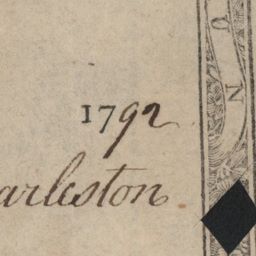 1792
arleston.